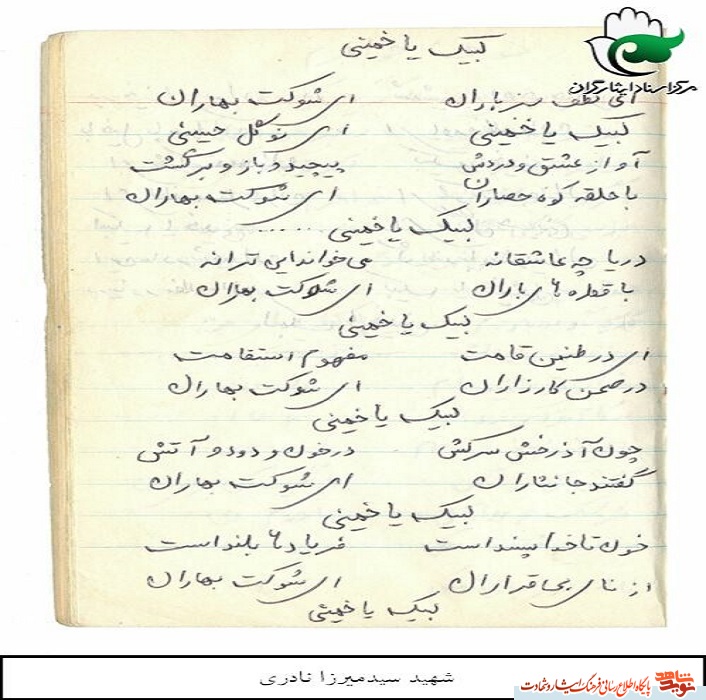 لبیک یا خمینی
مرکز اسناد ایثارگران
ای لطف سرباران ای شوکت بهاران
لبیک یا خمینی ای نوگل حسینی
آواز عشق و دردش پیچید و باز برگشت
با حلقه کوه حصاران ای شوکت بهاران
لبیک یا خمینی ......
دریاچه عاشقانه می‌خواند این ترانه
با قطره های باران ای شوکت بهاران
لبیک یا خمینی
ای در طنین قامت مفهوم استقامت
در صحن کارزاران ای شوکت بهاران
لبیک یا خمینی
چون آذرخش سرکش در خون و دود و آتش
گفتند جانثاران ای شوکت بهاران
لبیک یا خمینی
خون تا خدا پسند است فریادها بلند است
از نای بی‌قراران ای شوکت بهاران
لبیک یا خمینی
شهید سیدمیرزا نادری
نوید شاهد پایگاه اطلاع رسانی فرهنگ ایثار و شهادت